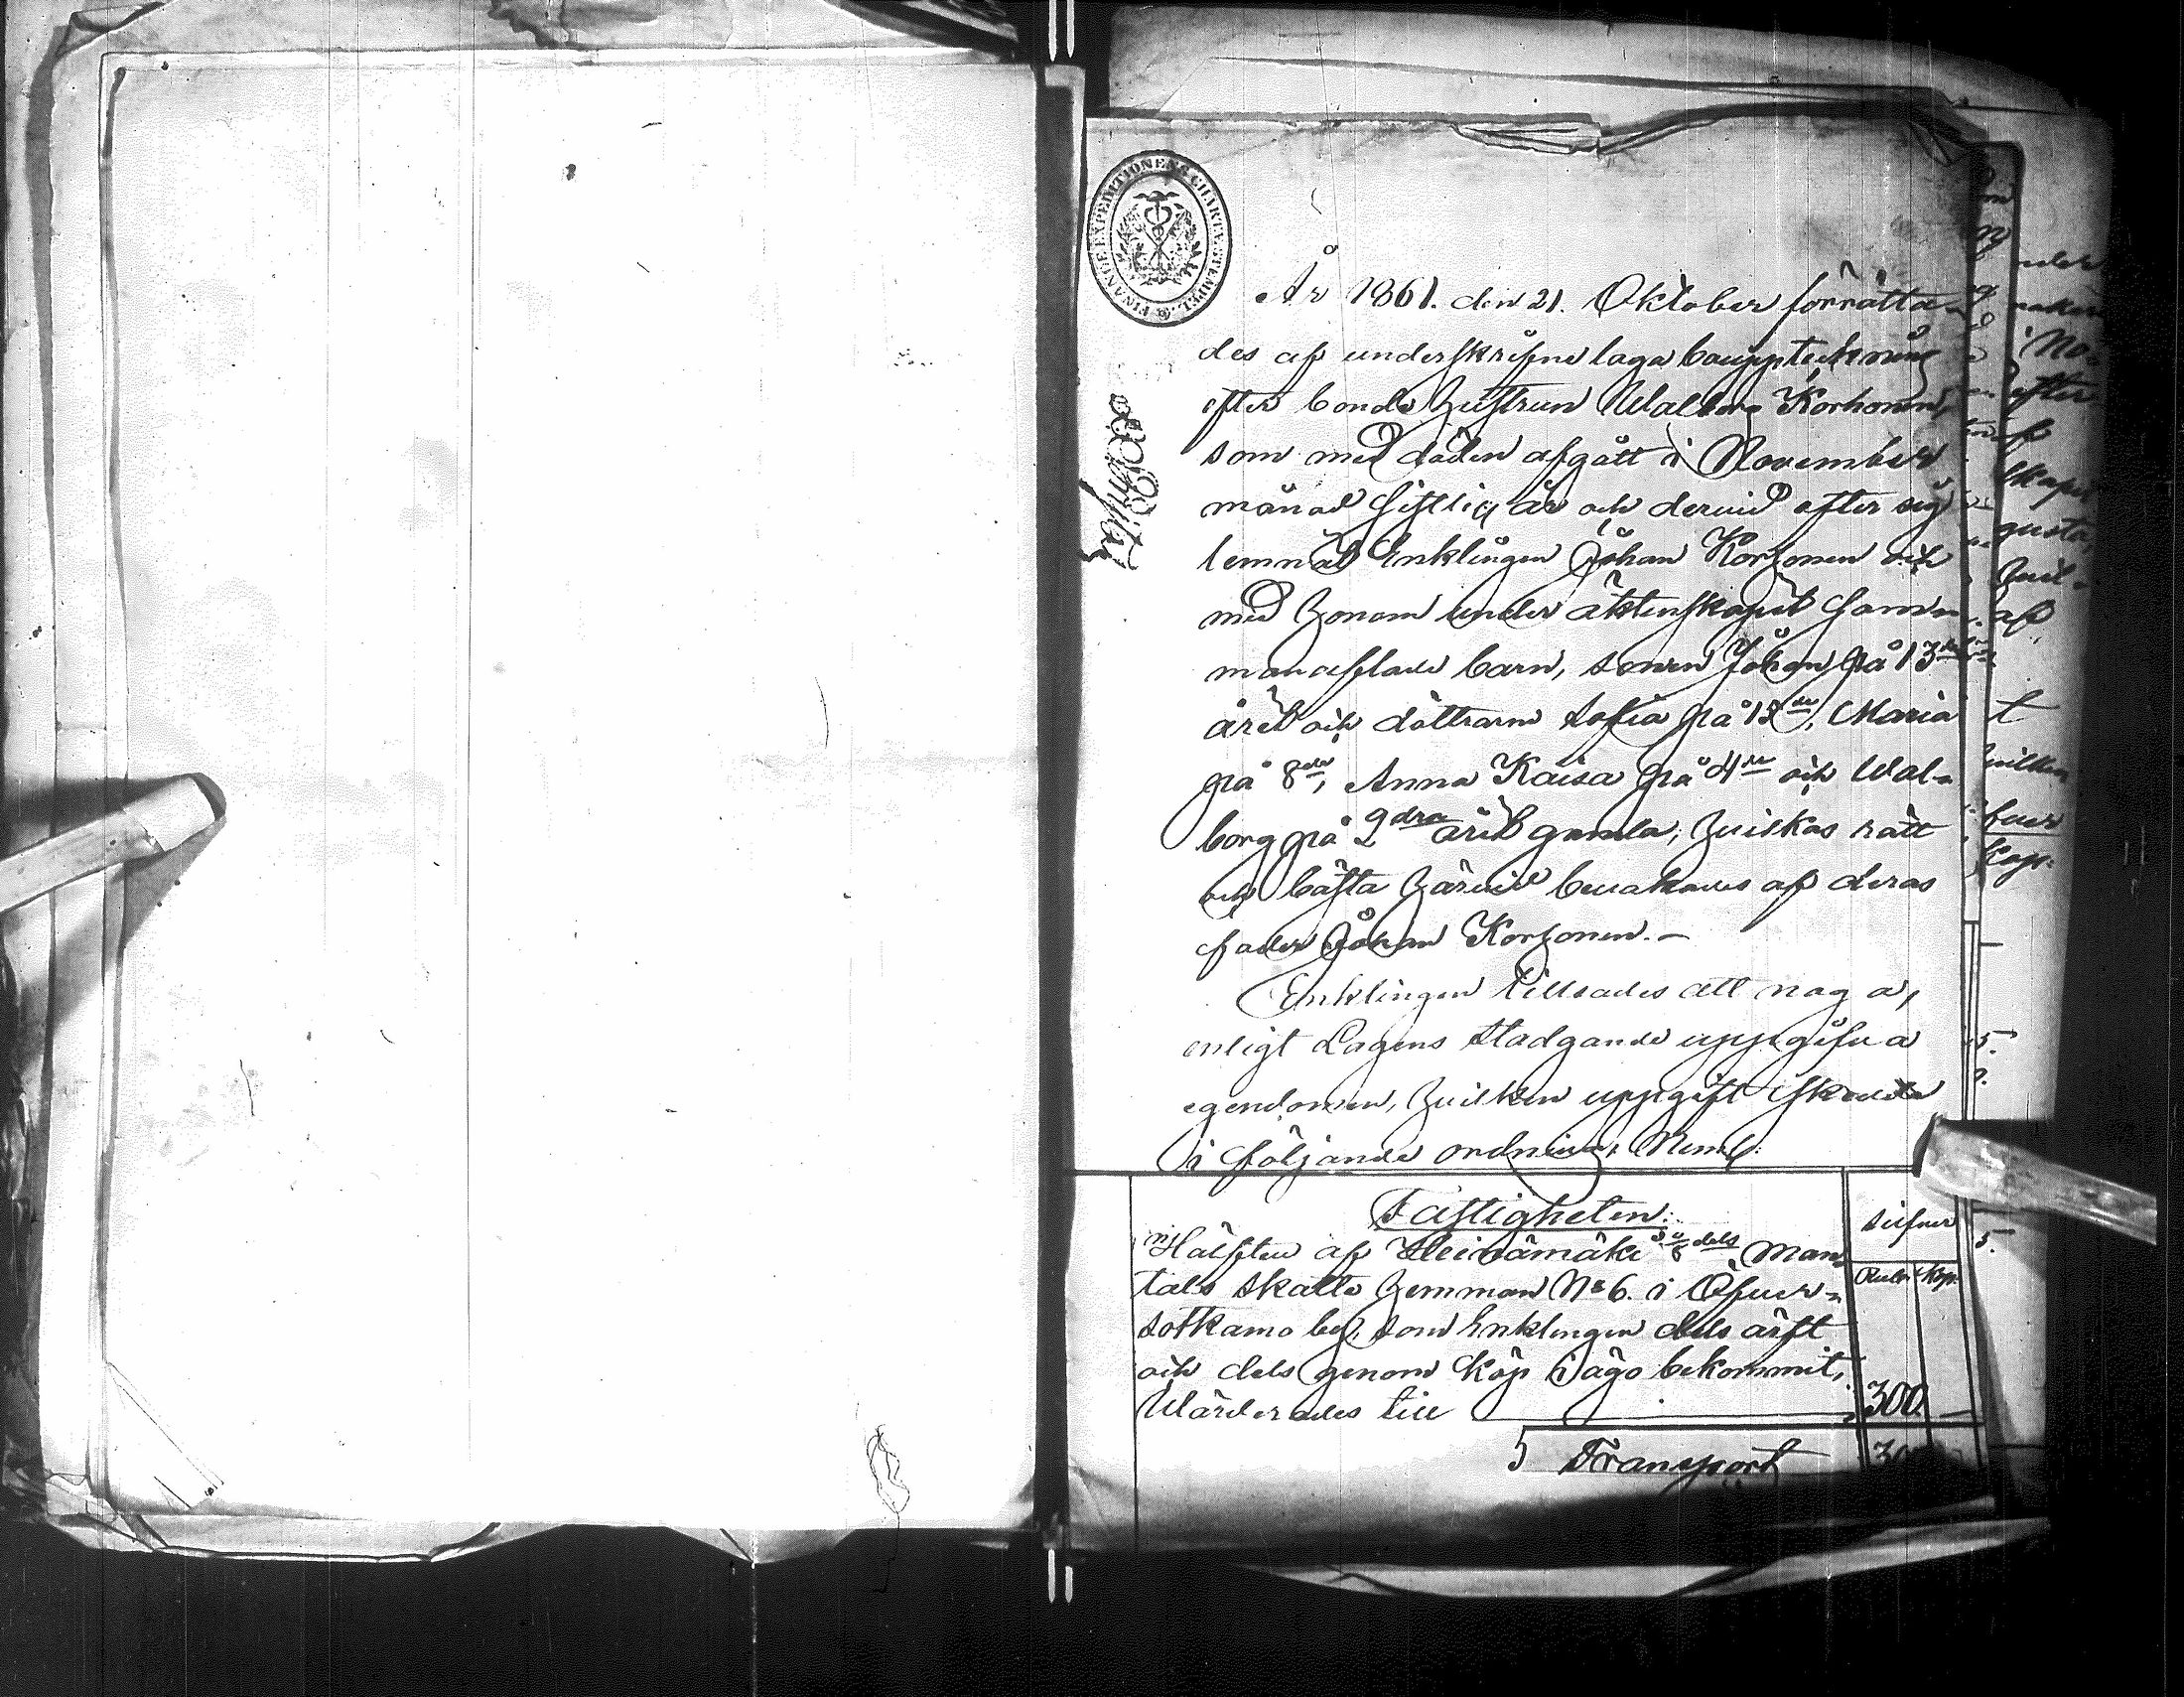 FINANCE EXPEDITIONENS CHARTÆ STEMPEL.
År 1861. den 21. Oktober förrätta-
des af underskrifne laga bouppteckning
efter bonde hustrun Walborg Korhonen,
som med döden afgått i November
månad sistlig år och dervid efter sig
lemnat Enklingen Johan Korhonen och
med honom under äktenskapet samm-
manaflade barn, sonen Johan på 13de
året och döttrarne Sofia på 12te, Maria
på 8de, Anna Kaisa på 4de och Wal-
borg på 2dra året gamla; hvilkas rätt
och bästa härvid bevakades af deras
fader Johan Korhonen.-
Enklingen tillsades att noga,
enligt Lagens stadgande uppgifva
egendomen, hvilken uppgift skedde
i följande ordning, Neml:
Fastigheten:
Hälften af Heinämäki dels Man-
tals skatte hemman No 6. i Öfver-
sotkamo by, som Enklingen dels ärft
och dels genom köp i ägo bekommit,
Wärderades till
Silfver
Rubl. Kop.
300. —
Transport